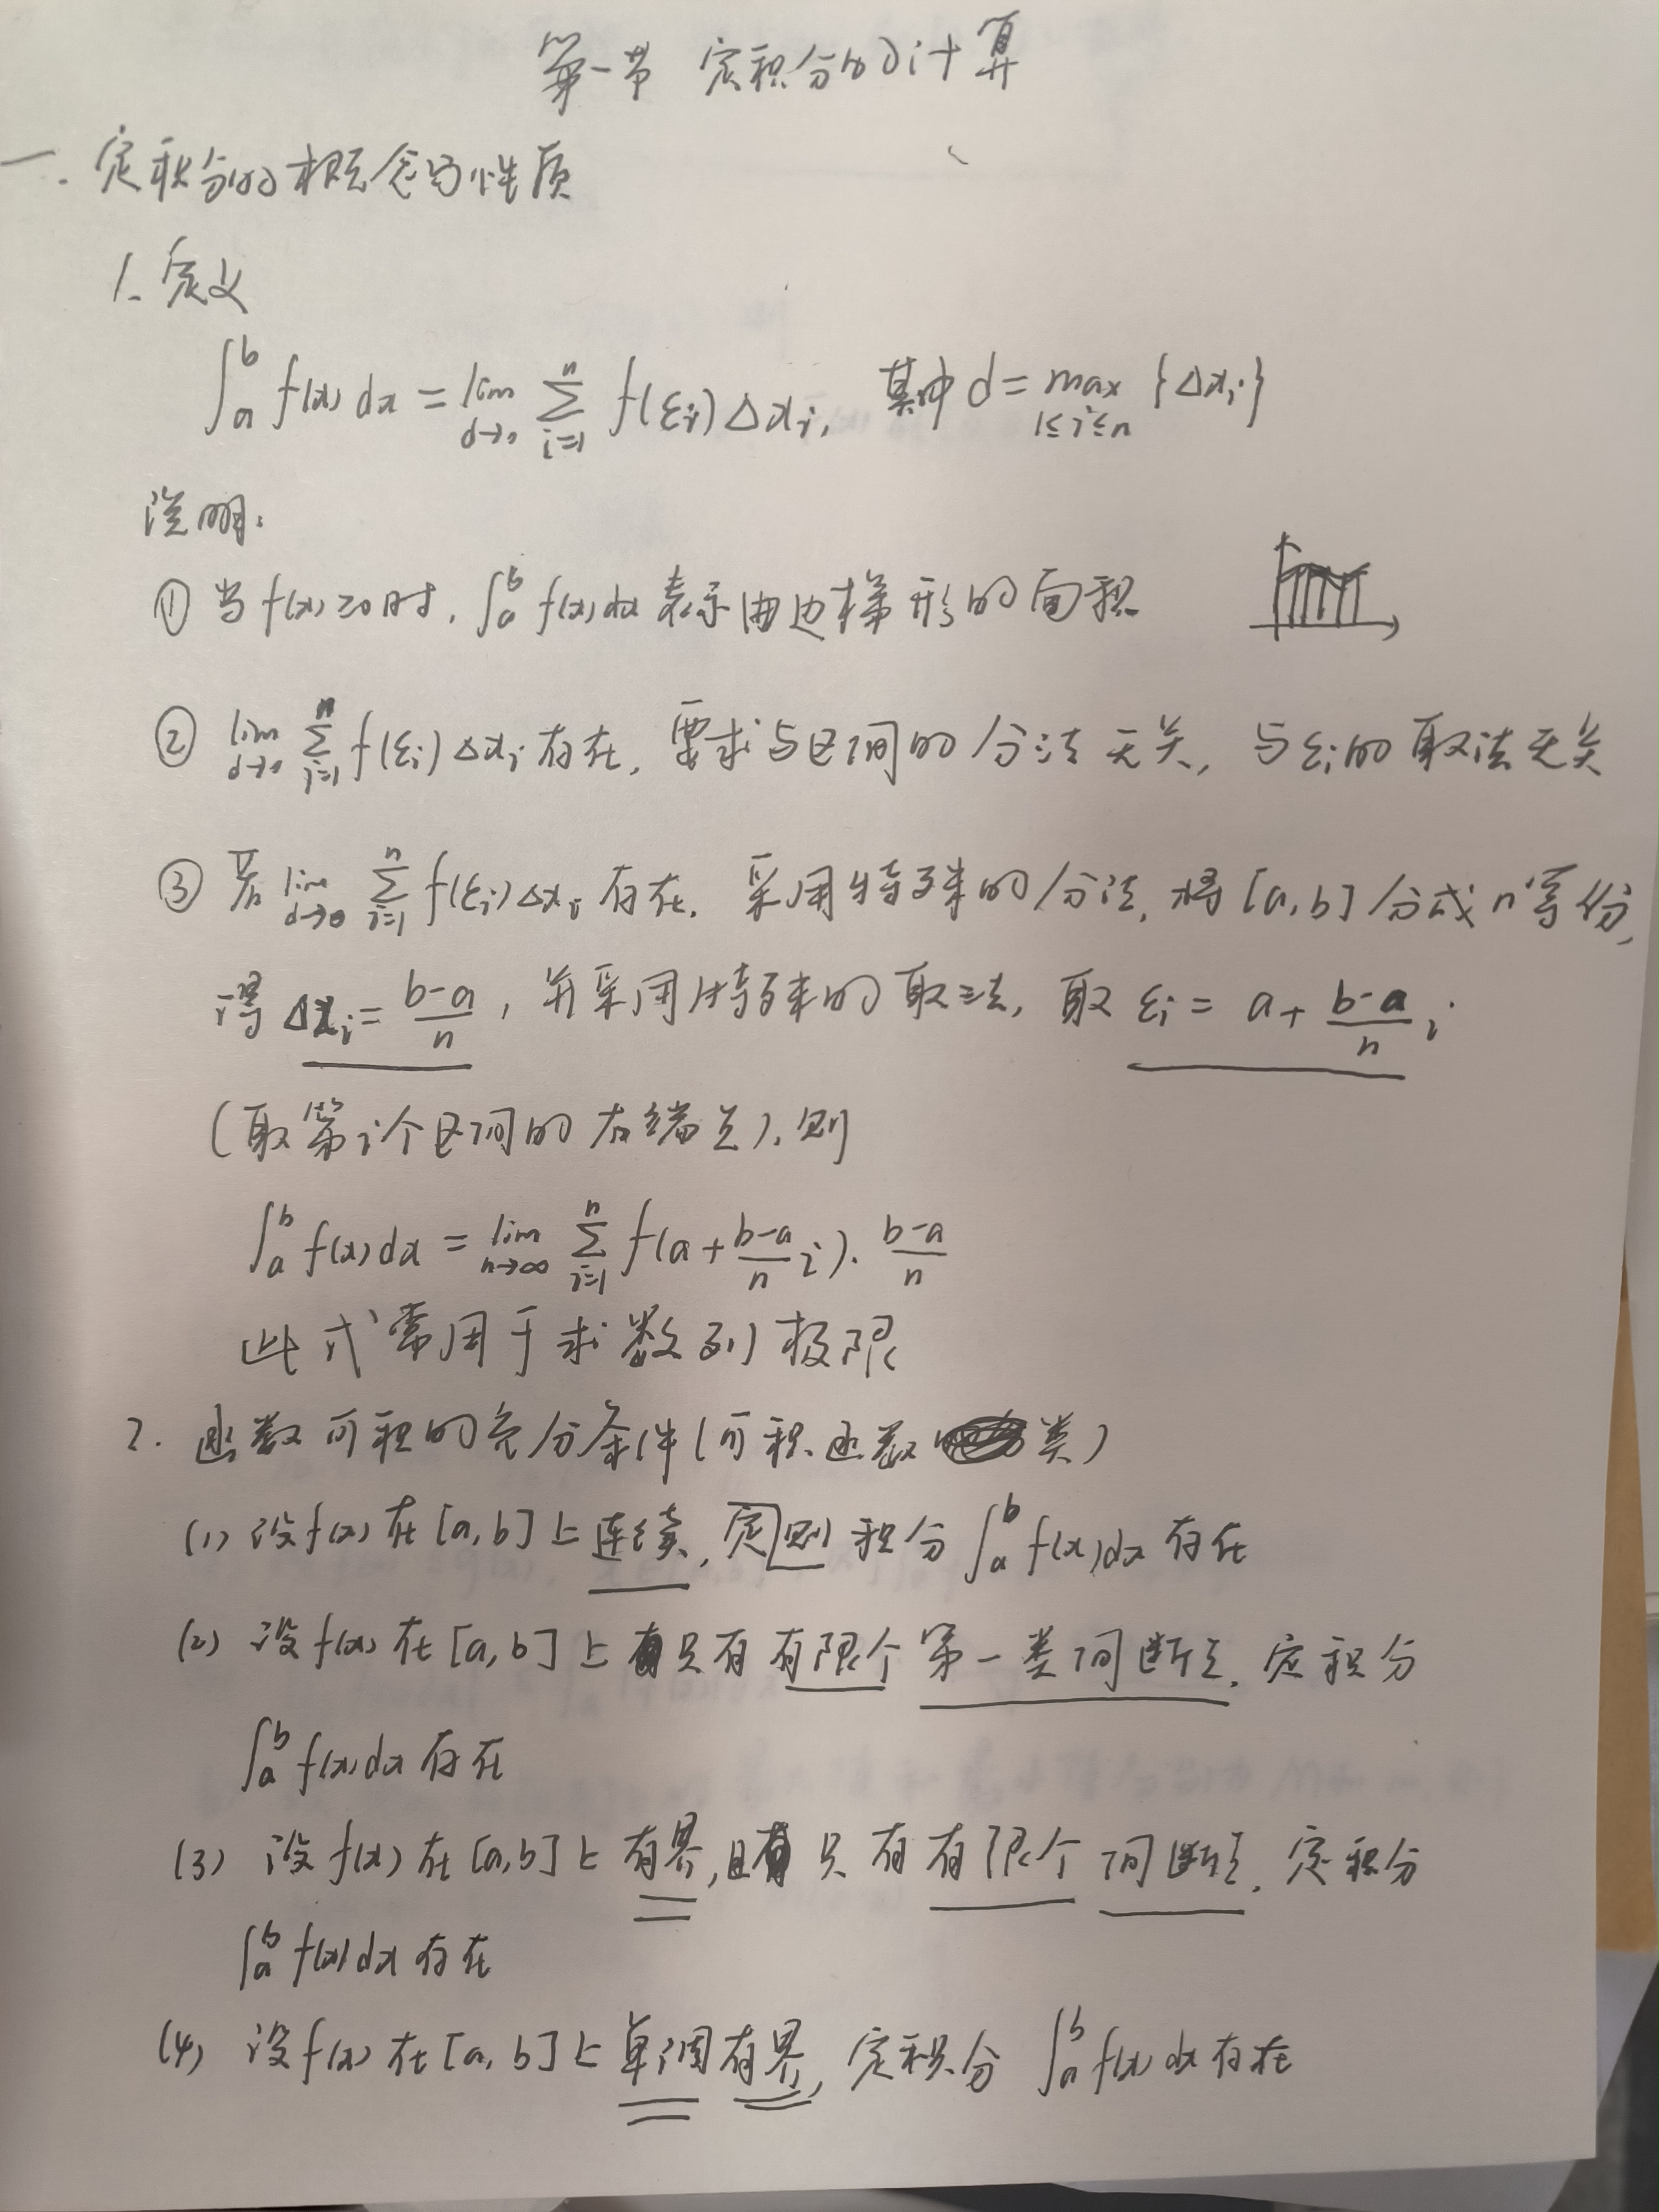 第一节 定积分的计算
一. 定积分的概念与性质
1. 定义
∫_a^b f(x)dx = lim_{d→0} ∑_{i=1}^n f(ξi)Δxi, 其中 d = max_{1≤i≤n} {Δxi}
说明:
① 当f(x)≥0时, ∫_a^b f(x)dx 表示曲边梯形的面积
② lim_{d→0} ∑_{i=1}^n f(ξi)Δxi 存在, 要求与区间的分法无关, 与ξi的取法无关
③ 若 lim_{d→0} ∑_{i=1}^n f(ξi)Δxi 存在, 采用特殊的分法, 将[a,b]分成n等份,
得 Δxi = (b-a)/n, 并采用特殊的取法, 取 ξi = a + (b-a)/n i
(取第i个区间的右端点), 则
∫_a^b f(x)dx = lim_{n→∞} ∑_{i=1}^n f(a + (b-a)/n i)·(b-a)/n
此式常用于求数列极限
2. 函数可积的充分条件(可积函数类)
(1) 设f(x)在[a,b]上连续, 定则积分 ∫_a^b f(x)dx 存在
(2) 设f(x)在[a,b]上只有有限个第一类间断点, 定积分
∫_a^b f(x)dx 存在
(3) 设f(x)在[a,b]上有界, 且只有有限个间断点, 定积分
∫_a^b f(x)dx 存在
(4) 设f(x)在[a,b]上单调有界, 定积分 ∫_a^b f(x)dx 存在